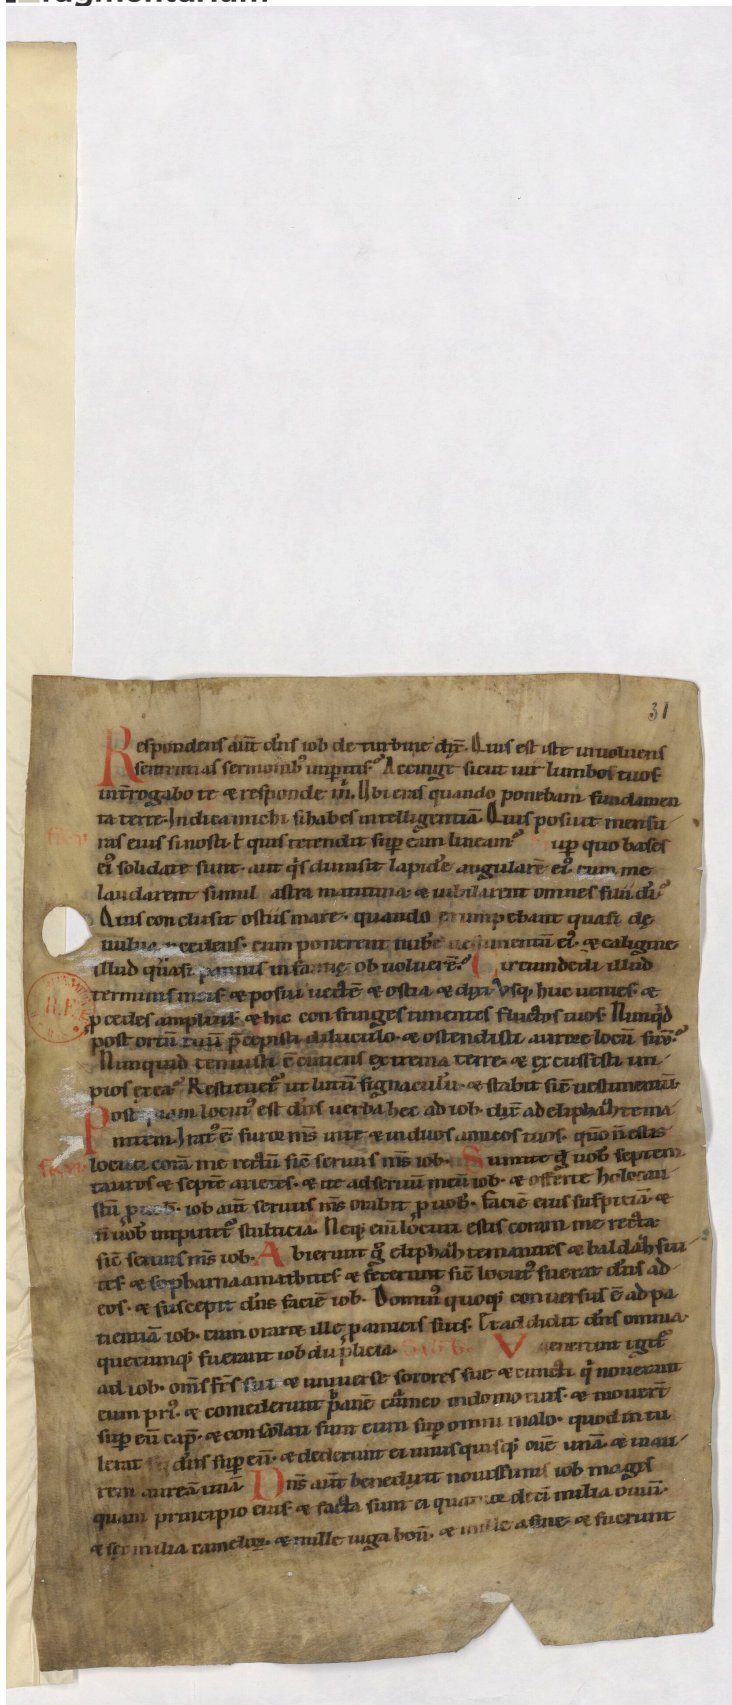 fragmentarium
31
Respondens aut̄ dn̄s iob de turbine dix̄. Quis est iste inuoluens
sententias sermonibꝰ imperitisˀ Accinge sicut uir lumbos tuos
int̄rogabo te & responde m̄. Ubi eras quando ponebam fundamen
ta terre. Indica michi si habes intelligentiā. Quis posuit mensu
ras eius si nosti. ł quis tetendit sup̄ eam lineamˀ up̄ quo bases
eiꝰ solidate sunt. aut q̄s dimisit lapidē angularē eiꝰ cum me
laudarent simul astra matutina. & iubilarent omnes filii dīˀ
Quis conclusit ostiis mare. quando erumpebant quasi de
uulua cedens. cum ponerem nubē uestimentū eiꝰ & caligine
illud quasi pannis infantię obuoluerēˀ Circumdedi illud
terminis meis & posui uectē & ostia & dixi Vsq; huc uenies. &
ꝓcedes amplius. & hic confringes tumentes fluctus tuos. Nunq̄d
post ortū tuū p̄cepisti diluculo. & ostendisti aurore locū suū.ˀ
Nunquid tenuisti ē cutiens extrema terre. & excussisti im
pios ex eaˀ Restituet̄ ut lutū signaculū. & stabit sic̄ uestimentū.
Post quam locutꝰ est dn̄s uerba hec ad iob. dix̄ ad eliphath tema
nitem. Iratꝰ ē furor m̄s in te & in duos amicos tuos. quō n̄ estis
locuti corā me rectū sic̄ seruus m̄s iob. Sumite ḡ uob̄ septem
tauros & septē arietes. & ite ad seruū meū iob. & offerte holocau
stū ꝓ uob̄. iob aut̄ seruus m̄s orabit ꝓ uob̄. faciē eius suscipiā. &
n̄ uob̄ imputet̄ stulticia. Neq; eni locuti estis coram me recta.
sic̄ seruus m̄s iob. Abierunt ḡ eliphath temanites & baldath sui
tes. & sophar naamathites & fecerunt sic̄ locutꝰ fuerat dn̄s ad
eos. & suscepit dn̄s faciē iob. Dominꝰ quoq; conuersus ē ad pe
nitentiā iob. cum oraret ille ꝓ amicis suis. Et addidit dn̄s omnia
quecumq; fuerant iob duplicia. Venerunt igit̄
ad iob. om̄s fr̄s sui & uniuerse sorores sue & cuncti q̄ nouerant
eum priꝰ. & comederunt panē cū eo in domo eius. & mouer̄t
sup̄ eū cap̄. & consolati sunt eum sup̄ omni malo. quod intu
lerat dn̄s sup̄ eū. & dederunt ei unusquisq; ouē unā. & inau
rem aureā unā Dn̄s aut̄ benedixit nouissimis iob magis
quam principio eius. & facta sunt ei quatuordeci milia ouiū.
& sex milia camelorꝫ. & mille iuga boū. & mille asine. & fuerunt